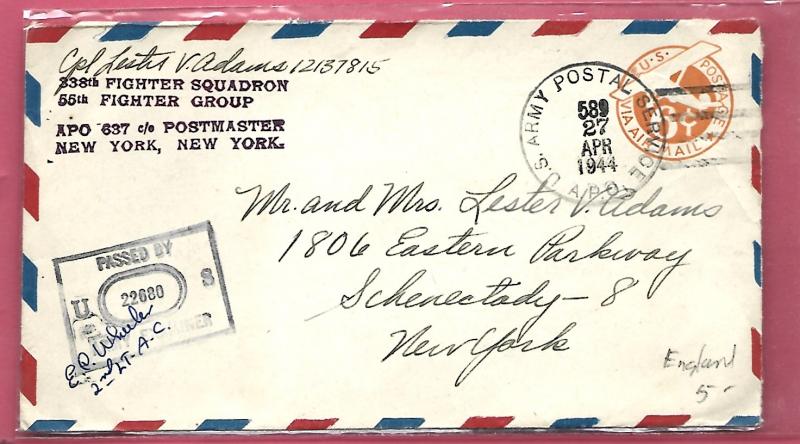 Cpl Lester V. Adams 12137815
338th FIGHTER SQUADRON
55th FIGHTER GROUP
APO 637 c/o POSTMASTER
NEW YORK, NEW YORK.
U.S. ARMY POSTAL SERVICE
A.P.O.
589
27
APR
1944
U.S. POSTAGE
VIA AIR MAIL
Mr. and Mrs. Lester V. Adams
1806 Eastern Parkway
Schenectady-8
New York
PASSED BY
U S
22680
ARMY EXAMINER
E.R. Wheeler
2nd LT-A.C.
England
5-